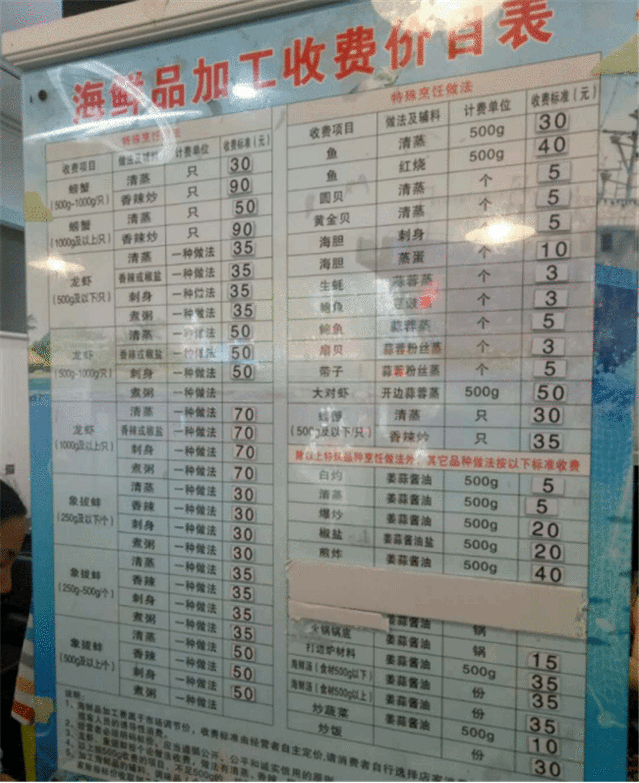 海鲜品加工收费价目表
特殊烹饪做法
收费项目 做法及辅料 计费单位 收费标准(元)
螃蟹 (500g-1000g/只) 清蒸 只 30
香辣炒 90
螃蟹 (1000g以上/只) 清蒸 只 50
香辣炒 90
龙虾 (500g以下/只) 清蒸 一种做法 35
香辣或椒盐 一种做法 35
刺身 一种做法 35
煮粥 一种做法 35
龙虾 (500g-1000g/只) 清蒸 一种做法 50
香辣或椒盐 一种做法 50
刺身 一种做法 50
煮粥 一种做法
龙虾 (1000g及以上/只) 清蒸 一种做法 70
香辣或椒盐 一种做法 70
刺身 一种做法 70
煮粥 一种做法 70
象拔蚌 (250g及以下/个) 清蒸 一种做法 30
香辣 一种做法 30
刺身 一种做法 30
煮粥 一种做法 30
象拔蚌 (250g-500g/个) 清蒸 一种做法 35
香辣 一种做法 35
刺身 一种做法 35
煮粥 一种做法 35
象拔蚌 (500g及以上/个) 清蒸 一种做法 50
刺身 一种做法 50
煮粥 一种做法 50
特殊烹饪做法
收费项目 做法及辅料 计费单位 收费标准(元)
鱼 清蒸 500g 30
鱼 红烧 500g 40
圆贝 清蒸 个 5
黄金贝 清蒸 个 5
海胆 刺身
海胆 蒸蛋 个 10
生蚝 蒜蓉蒸 个 3
鲍鱼 个 3
鲍鱼 蒜蓉蒸 个 5
扇贝 蒜蓉粉丝蒸 个 3
带子 蒜蓉粉丝蒸 个 5
大对虾 开边蒜蓉蒸 500g 50
螃蟹 (500g及以下/只) 清蒸 只 30
香辣炒 只 35
除以上特殊品种烹饪做法外，其它品种做法按以下标准收费
白灼 姜蒜酱油 500g 5
清蒸 姜蒜酱油 500g 5
爆炒 姜蒜酱油 500g 20
椒盐 姜蒜酱油盐 500g 20
煎炸 姜蒜酱油 500g 40
姜蒜酱油 锅
锅底 姜蒜酱油 锅 15
打边炉材料 姜蒜酱油 500g 35
海鲜汤(食材500g以下) 姜蒜酱油 份 35
海鲜汤(食材500g以上) 姜蒜酱油 份 35
炒蔬菜 10
炒饭 份 30
说明：
1、海鲜品加工费属于市场调节价，收费标准由经营者自主定价，请消费者自行选择店家